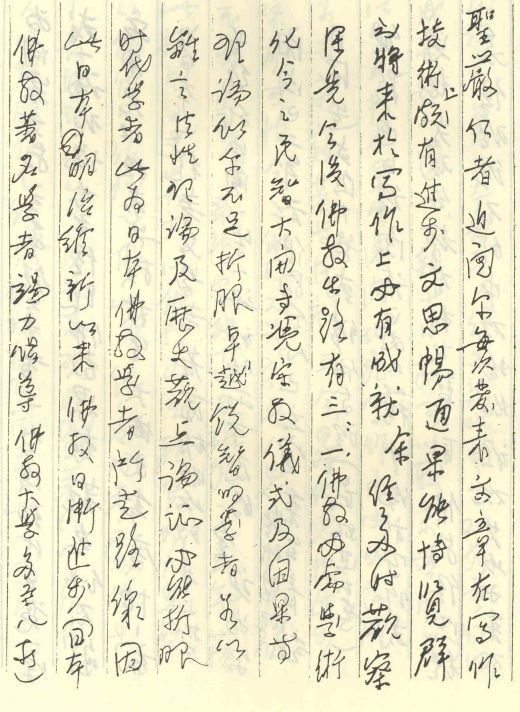 聖嚴仁者 近閱尔每發表文章在寫作
技術上頗有進步 文思暢通 果能博覽群
书將来於寫作上必有成就 余經多时觀察
果先 今後佛教出路有三：一、佛教必屬學術
化 今之民智大開 专凭宗教儀式及因果等
理論似乎不足折服卓越銳智的學者 若以
離言法性理論及歷史觀点論証 必能折服
时代學者 此為日本佛教學者所走路線 因
此日本自明治維新以来 佛教日漸進步（日本
佛教著名學者竭力倡導 佛教大學多至八所）